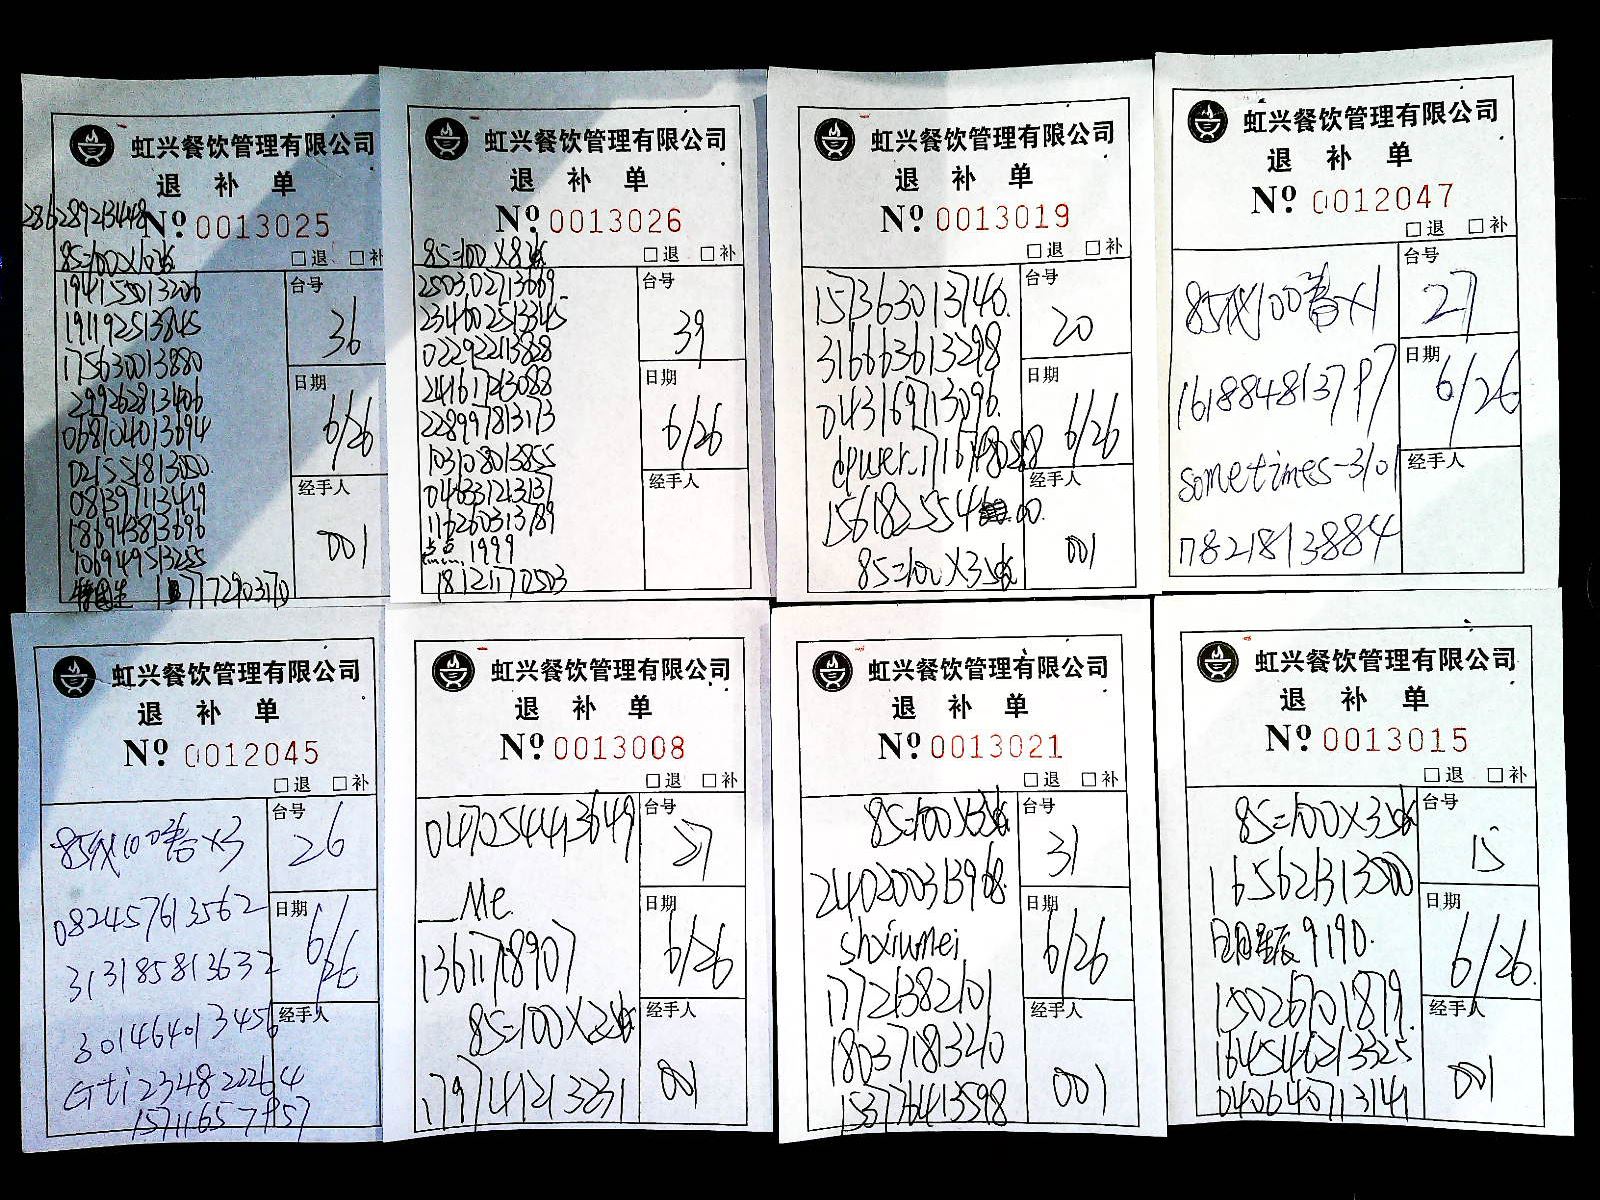 虹兴餐饮管理有限公司
退 补 单
2862892134448
Nº 0013025
85=100×10张
□退 □补
194155013206
191192513845
175630013880
299262813406
068104013694
021551813050.
081397113419
186943813696
106949513255
17772903170
台号
36
日期
6/26
经手人
001
虹兴餐饮管理有限公司
退 补 单
Nº 0013026
85=100×8张
□退 □补
250302713669.
234002513345
022922113828
241617213088
228997813173
103108013855
046331213137
116260313789
点点 1999
18121170503
台号
39
日期
6/26
经手人
虹兴餐饮管理有限公司
退 补 单
Nº 0013019
□退 □补
157363013140.
316663613298
043169713096.
85=100×3张
台号
20
日期
6/26
经手人
001
虹兴餐饮管理有限公司
退 补 单
Nº 0012047
□退 □补
85代100券×1
161884813797
sometimes-3101
17821813884
台号
27
日期
6/26
经手人
虹兴餐饮管理有限公司
退 补 单
Nº 0012045
□退 □补
85代100券×3
082457613562
313185813632
301464013456
Gti234822264
15711657957
台号
26
日期
6/26
经手人
虹兴餐饮管理有限公司
退 补 单
Nº 0013008
□退 □补
047054413649
__Me.
13611718907
85=100×2张
179741213231
台号
27
日期
6/26
经手人
001
虹兴餐饮管理有限公司
退 补 单
Nº 0013021
□退 □补
85=100×3张
240200313968.
shxiumei
17721382101
180371813210
153776413598
台号
31
日期
6/26
经手人
001
虹兴餐饮管理有限公司
退 补 单
Nº 0013015
□退 □补
85=100×3张
165621313500
日月星辰9190.
15026901879.
164546213325
040640713141
台号
15
日期
6/26.
经手人
001